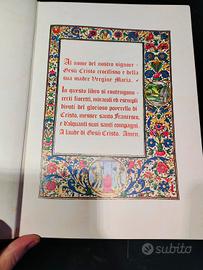 Al nome del nostro signore
Gesù Cristo crocifisso e della
sua madre Vergine Maria.
In questo libro si contengono
certi fioretti, miracoli ed esempli
divoti del glorioso poverello di
Cristo, messer santo Francesco,
e d'alquanti suoi santi compagni.
A laude di Gesù Cristo. Amen.
subito